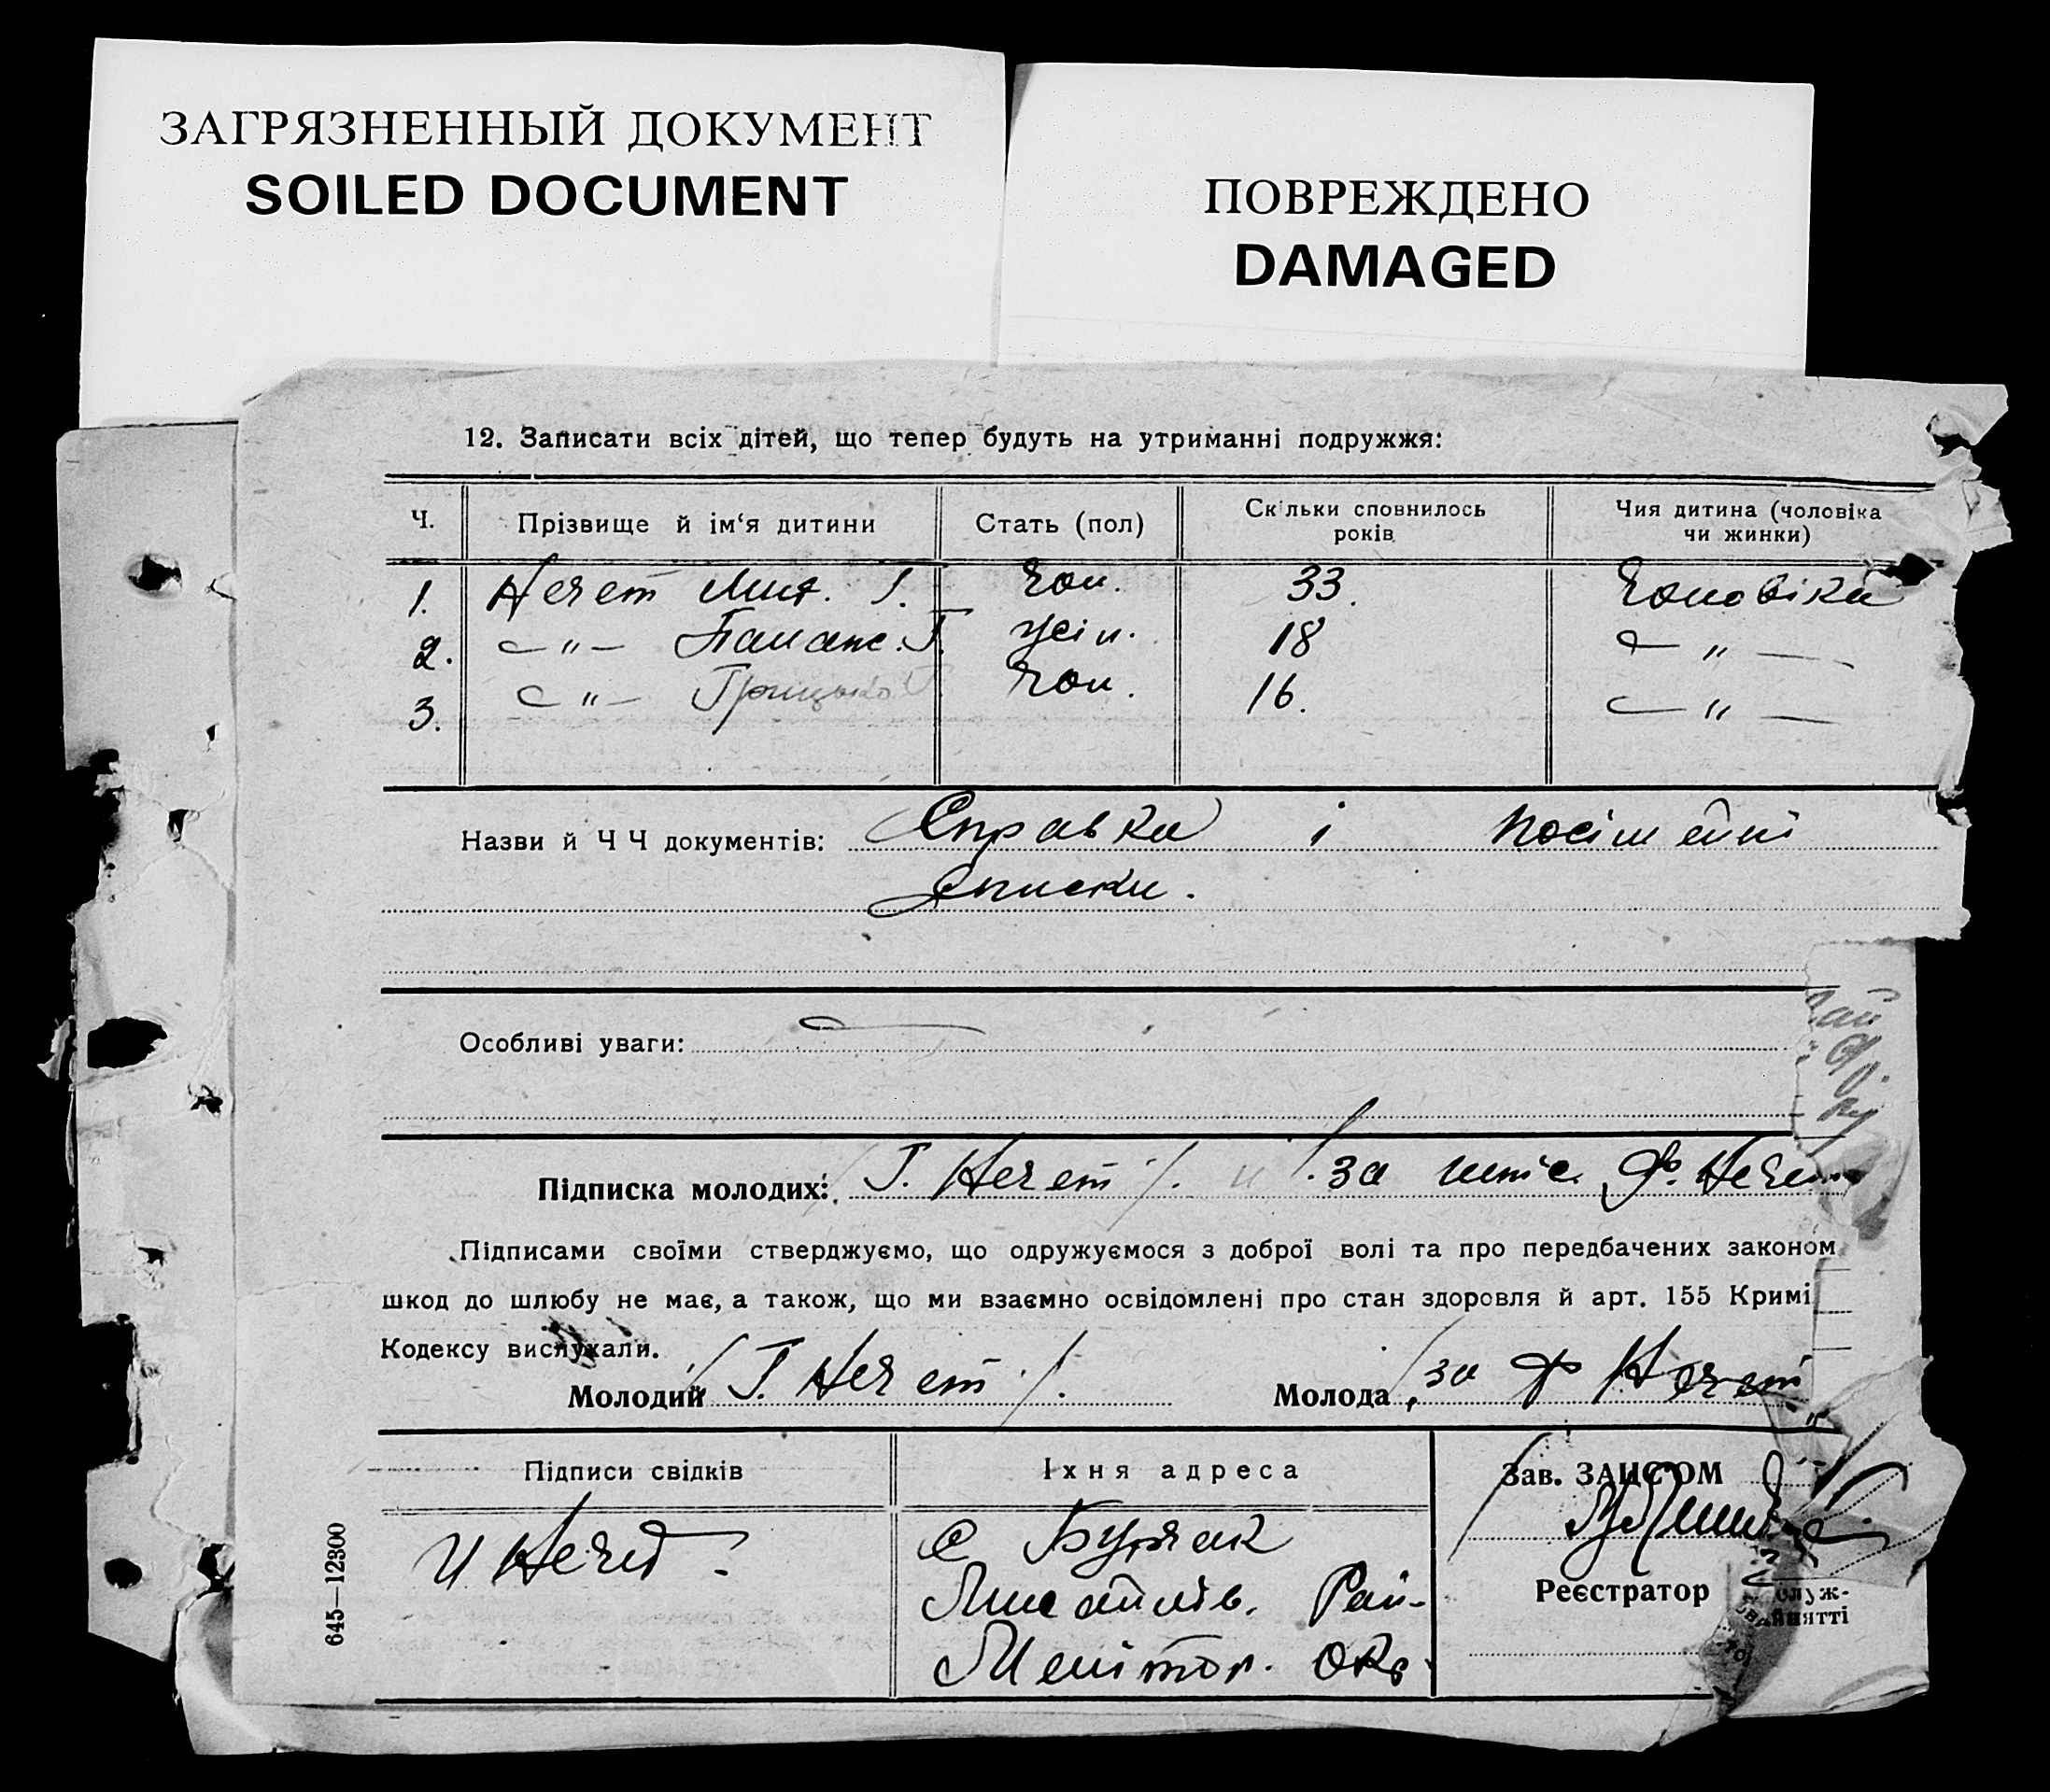 ЗАГРЯЗНЕННЫЙ ДОКУМЕНТ
SOILED DOCUMENT
ПОВРЕЖДЕНО
DAMAGED
12. Записати всіх дітей, що тепер будуть на утриманні подружжя:
Ч. Прізвище й ім‘я дитини Стать (пол) Скільки сповнилось років Чия дитина (чоловіка чи жинки)
1. Нечет Мит. Г. чол. 33. Чоловіка
2. —〃— Палаж. Г. жін. 18 —〃—
3. —〃— Грицько Г. чол. 16. —〃—
Назви й Ч Ч документів: Справка і посімейні
списки.
Особливі уваги: —
Підписка молодих: / Г. Нечет /. и /за Ф. Нечет
Підписами своїми стверджуємо, що одружуємося з доброї волі та про передбачених законом
шкод до шлюбу не має, а також, що ми взаємно освідомлені про стан здоровля й арт. 155 Кримі
Кодексу вислухали.
Молодий / Г. Нечет /. Молода /за Ф Нечет
Підписи свідків Їхня адреса Зав. ЗАГС'ОМ
И Нечет. с Бурчак
Михайлів. Рай-
Мелітоп. Окр.
Реєстратор
служ-
йнятті
645—12300